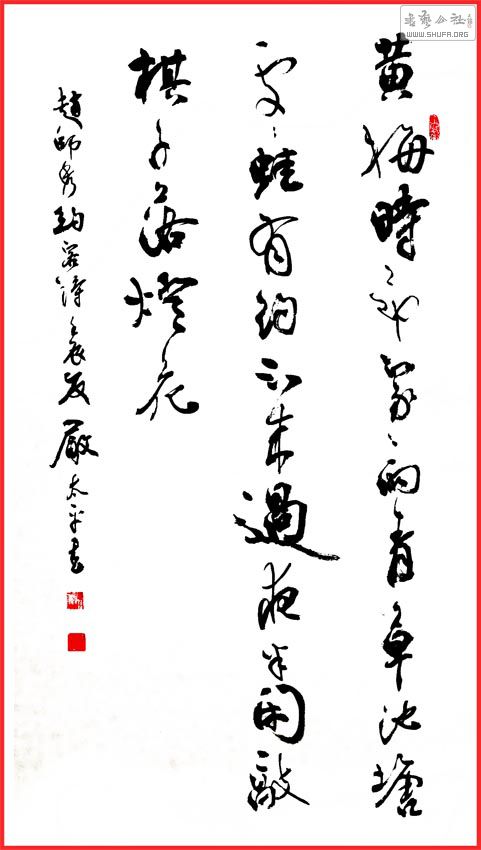 黄梅時節家〻雨青草池塘
處〻蛙有約不來過夜半閑敲
棋子落燈花
趙師秀約客詩壬辰夏嚴太平書
書藝公社
WWW.SHUFA.ORG